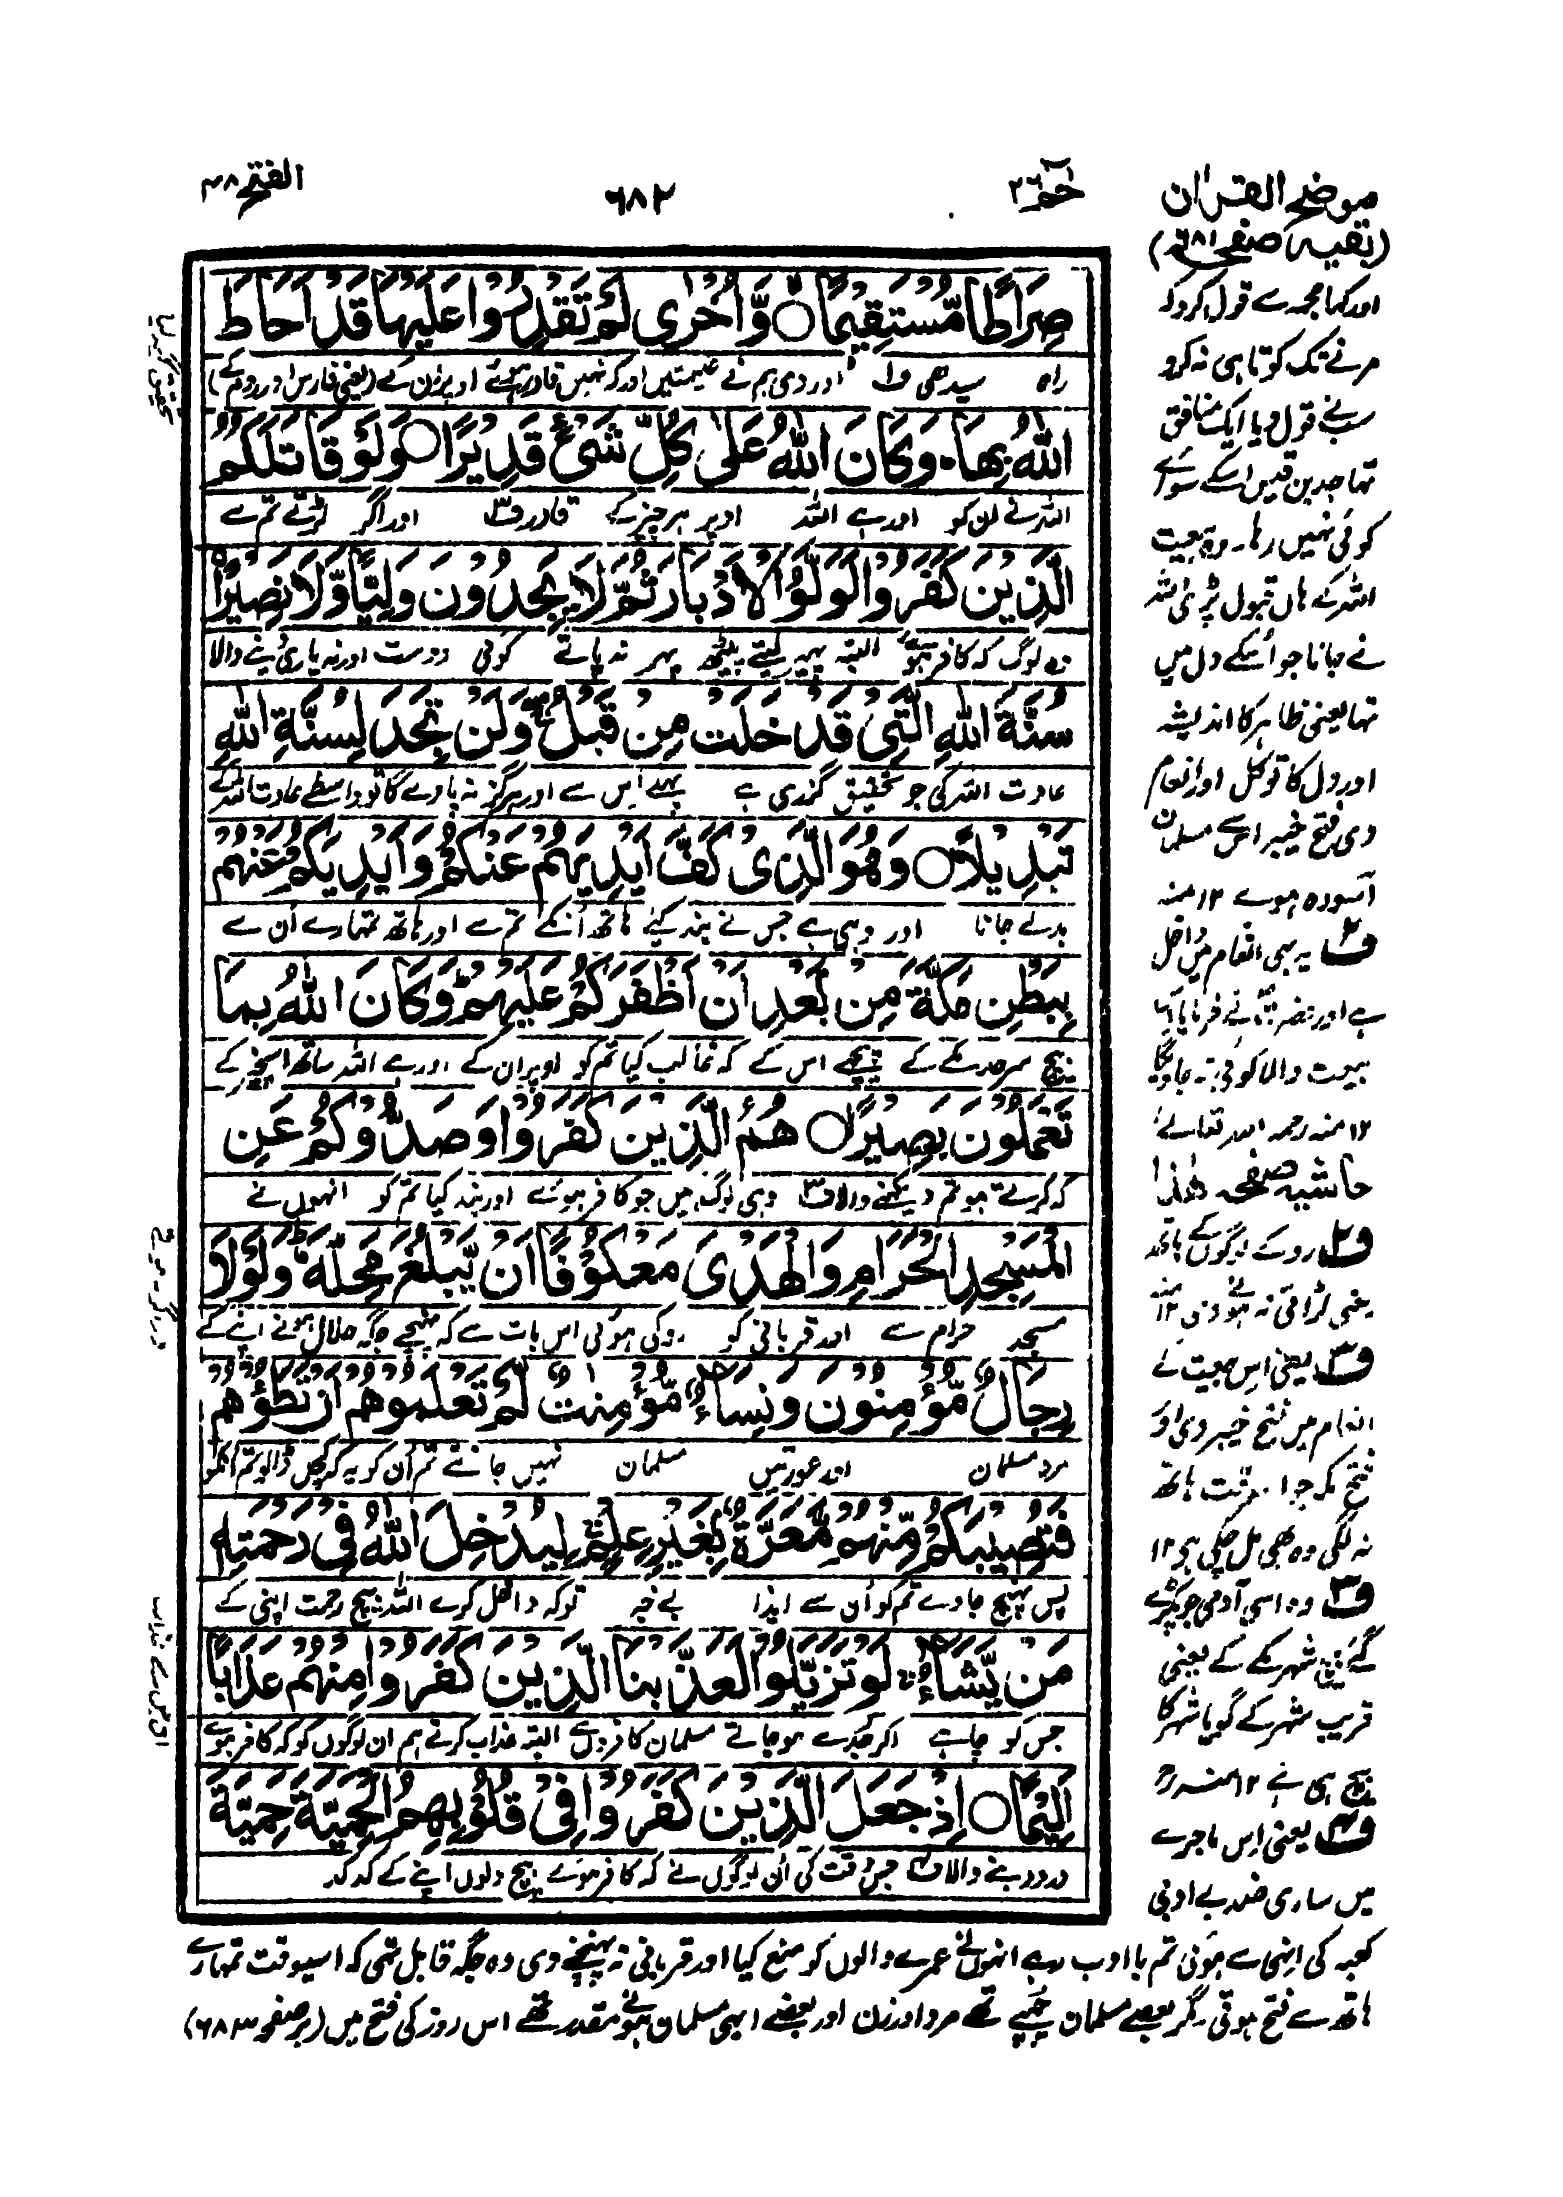 حٰمٓ ٢٦
٦٨٢
الفتح ٤٨
صِرَاطًا مُّسْتَقِيْمًا ○ وَّاُخْرٰى لَمْ تَقْدِرُوْا عَلَيْهَا قَدْ اَحَاطَ
راہ سیدھی ف۱ اور دی ہم نے غنیمتیں اور کہ نہیں قادر ہوئے اوپر ان کے (یعنی فارس اور روم کے)
اللّٰهُ بِهَا ؕ وَكَانَ اللّٰهُ عَلٰى كُلِّ شَيْءٍ قَدِيْرًا ○ وَلَوْ قَاتَلَكُمُ
اللہ نے ان کو اور ہے اللہ اوپر ہر چیز کے قادر ف۲ اور اگر لڑتے تم سے
الَّذِيْنَ كَفَرُوْا لَوَلَّوُا الْاَدْبَارَ ثُمَّ لَا يَجِدُوْنَ وَلِيًّا وَّلَا نَصِيْرًا
وے لوگ کہ کافر ہوئے البتہ پھیر لیتے پیٹھ پھر نہ پاتے کوئی دوست اور نہ یاری دینے والا
سُنَّةَ اللّٰهِ الَّتِيْ قَدْ خَلَتْ مِنْ قَبْلُ ۚ وَلَنْ تَجِدَ لِسُنَّةِ اللّٰهِ
عادت اللہ کی جو تحقیق گزری ہے پہلے اس سے اور ہرگز نہ پاوے گا تو واسطے عادت اللہ کے
تَبْدِيْلًا ○ وَهُوَ الَّذِيْ كَفَّ اَيْدِيَهُمْ عَنْكُمْ وَاَيْدِيَكُمْ عَنْهُمْ
بدلے جانا اور وہی ہے جس نے بند کیئے ہاتھ اُنکے تم سے اور ہاتھ تمہارے اُن سے
بِبَطْنِ مَكَّةَ مِنْۢ بَعْدِ اَنْ اَظْفَرَكُمْ عَلَيْهِمْ ؕ وَكَانَ اللّٰهُ بِمَا
بیچ سرحد مکے کے پیچھے اس کے کہ غالب کیا تم کو اوپر ان کے اور ہے اللہ ساتھ اس چیز کے
تَعْمَلُوْنَ بَصِيْرًا ○ هُمُ الَّذِيْنَ كَفَرُوْا وَصَدُّوْكُمْ عَنِ
کہ کرتے ہو تم دیکھنے والا ف۳ وہی لوگ ہیں جو کافر ہوئے اور بند کیا تم کو انہوں نے
الْمَسْجِدِ الْحَرَامِ وَالْهَدْيَ مَعْكُوْفًا اَنْ يَّبْلُغَ مَحِلَّهٗ ؕ وَلَوْلَا
مسجد حرام سے اور قربانی کو روکی ہوئی اس بات سے کہ پہنچے جگہ حلال ہونے اپنے کے
رِجَالٌ مُّؤْمِنُوْنَ وَنِسَآءٌ مُّؤْمِنٰتٌ لَّمْ تَعْلَمُوْهُمْ اَنْ تَطَـُٔوْهُمْ
مرد مسلمان اور عورتیں مسلمان نہیں جانتے تم اُن کو یہ کہ کچل ڈالو تم انکو
فَتُصِيْبَكُمْ مِّنْهُمْ مَّعَرَّةٌۢ بِغَيْرِ عِلْمٍ ۚ لِيُدْخِلَ اللّٰهُ فِيْ رَحْمَتِهٖ
پس پہنچ جاوے تم کو اُن سے ایذا بے خبر توکہ داخل کرے اللہ بیچ رحمت اپنی کے
مَنْ يَّشَآءُ ۚ لَوْ تَزَيَّلُوْا لَعَذَّبْنَا الَّذِيْنَ كَفَرُوْا مِنْهُمْ عَذَابًا
جس کو چاہے اگر جدے ہو جاتے مسلمان کافروں سے البتہ عذاب کرتے ہم ان لوگوں کو کہ کافر ہوئے
اَلِيْمًا ○ اِذْ جَعَلَ الَّذِيْنَ كَفَرُوْا فِيْ قُلُوْبِهِمُ الْحَمِيَّةَ حَمِيَّةَ
درد دینے والا ف۴ جس وقت کی اُن لوگوں نے کہ کافر ہوئے بیچ دلوں اپنے کے کد کد
موضح القرآن
(بقیہ صفحہ ٦٨١)
اور کہا مجھ سے قول کرو کہ
مرنے تک کوتاہی نہ کرو
سب نے قول دیا ایک منافق
تھا جد بن قیس اسکے سوائے
کوئی نہیں رہا۔ وہ بیعت
اللہ کے ہاں قبول پڑی اللہ
نے جانا جو اُنکے دل میں
تھا یعنی ظاہر کا اندیشہ
اور دل کا توکل اور انعام
دی فتح خیبر اس سے مسلمان
آسودہ ہوے ۱۲ منہ
ف۲ یہ بھی انعام میں داخل
ہے اور حضرتؐ نے فرمایا اس
بیعت والا کوئی نہ جاویگا
۱۲ منہ رحمہ اللہ تعالےٰ
حاشیہ صفحہ ھٰذا
ف۲ روکے لوگوں کے ہاتھ
یعنی لڑائی نہ ہونے دی ۱۲ منہ
ف۳ یعنی اس بیعت کے
انعام میں فتح خیبر دی اور
فتح مکہ جو اس وقت ہاتھ
نہ لگی وہ بھی مل چکی ہے ۱۲
ف۳ وہ اسی آدمی جو پکڑے
گئے بیچ شہر مکے کے یعنی
قریب شہر کے گویا شہر کا
بیچ ہی ہے ۱۲ منہ رح
ف۴ یعنی اس ماجرے
میں ساری ضد بے ادبی
کعبہ کی انہی سے ہوئی تم با ادب رہے انہوں نے عمرے والوں کو منع کیا اور قربانی نہ پہنچنے دی وہ جگہ قابل تھی کہ اسیوقت تمہارے
ہاتھ سے فتح ہوتی۔ مگر بعضے مسلمان چھپے تھے مرد اور زن اور بعضے ابھی مسلمان ہونے مقدر تھے اس روز کی فتح میں (بر صفحہ ٦٨٣)